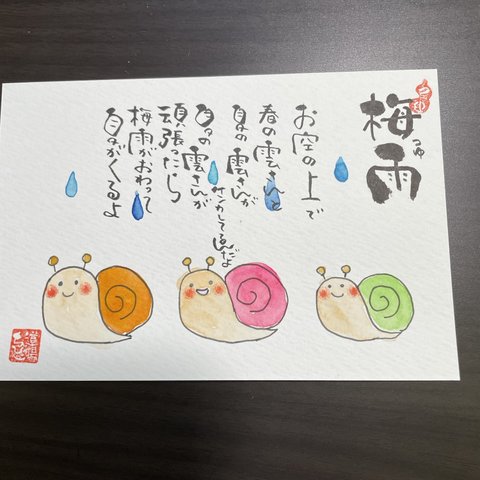 梅雨
つゆ
お空の上で
春の雲さんと
夏の雲さんが
ケンカしてるんだよ
夏の雲さんが
頑張ったら
梅雨がおわって
夏がくるよ